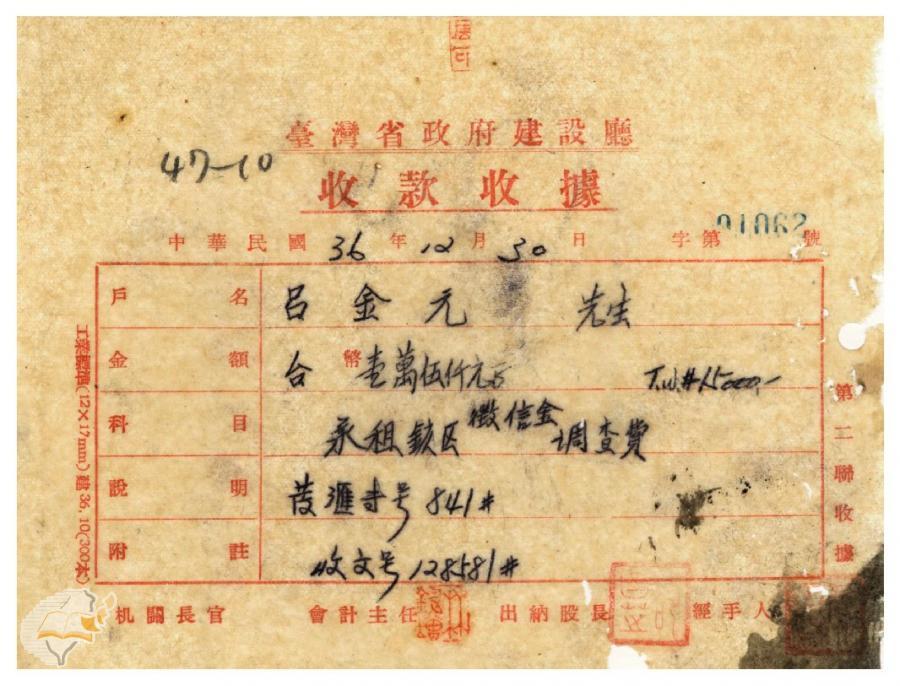 47-10
臺灣省政府建設廳
收款收據
中華民國 36 年 12 月 30 日 字第 01062 號
戶名 呂金元 先生
金額 台幣壹萬伍仟元 T.W.#15000.-
科目 承租鑛区徵信金调查費
說明 号841#
附註 收文号128581#
机關長官 會計主任 出納股長 經手人
第二聯收據
工業標準(12×17mm)建36.10(300本)